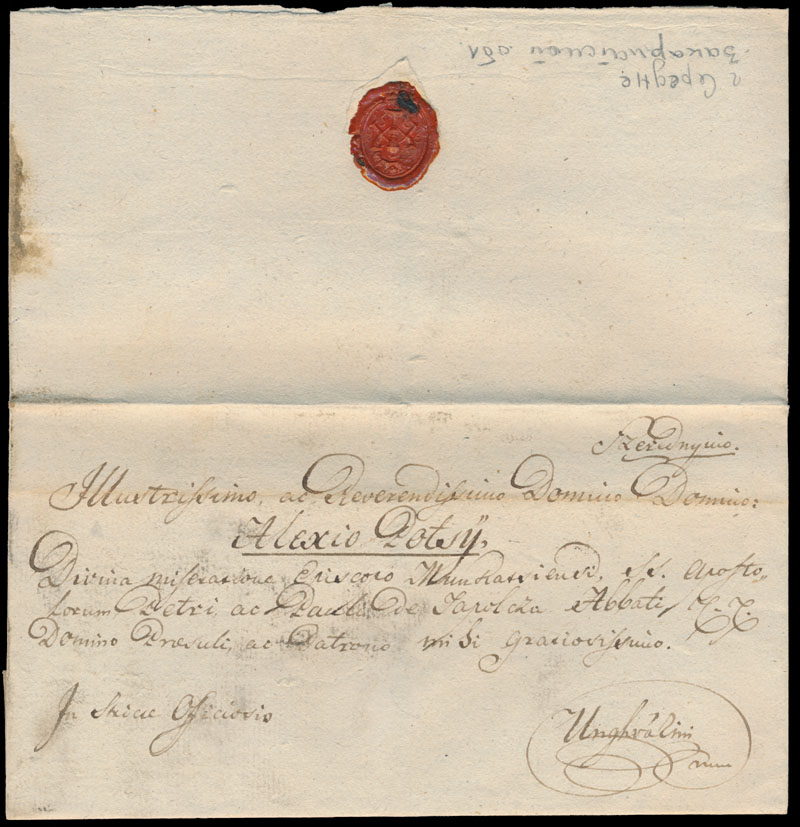 г Середнє
Закарпатської обл.
Szerednyino.
Illustrissimo, ac Reverendissimo Domino Domino:
Alexio Potsÿ,
Divina miseratione Episcopo Munkatsiensi, SS. Aposto„
lorum Petri ac Pauli de Tapolcza Abbati,
Domino Præsuli, ac Patrono mihi graciosissimo.
In Officiosis
Unghvárini